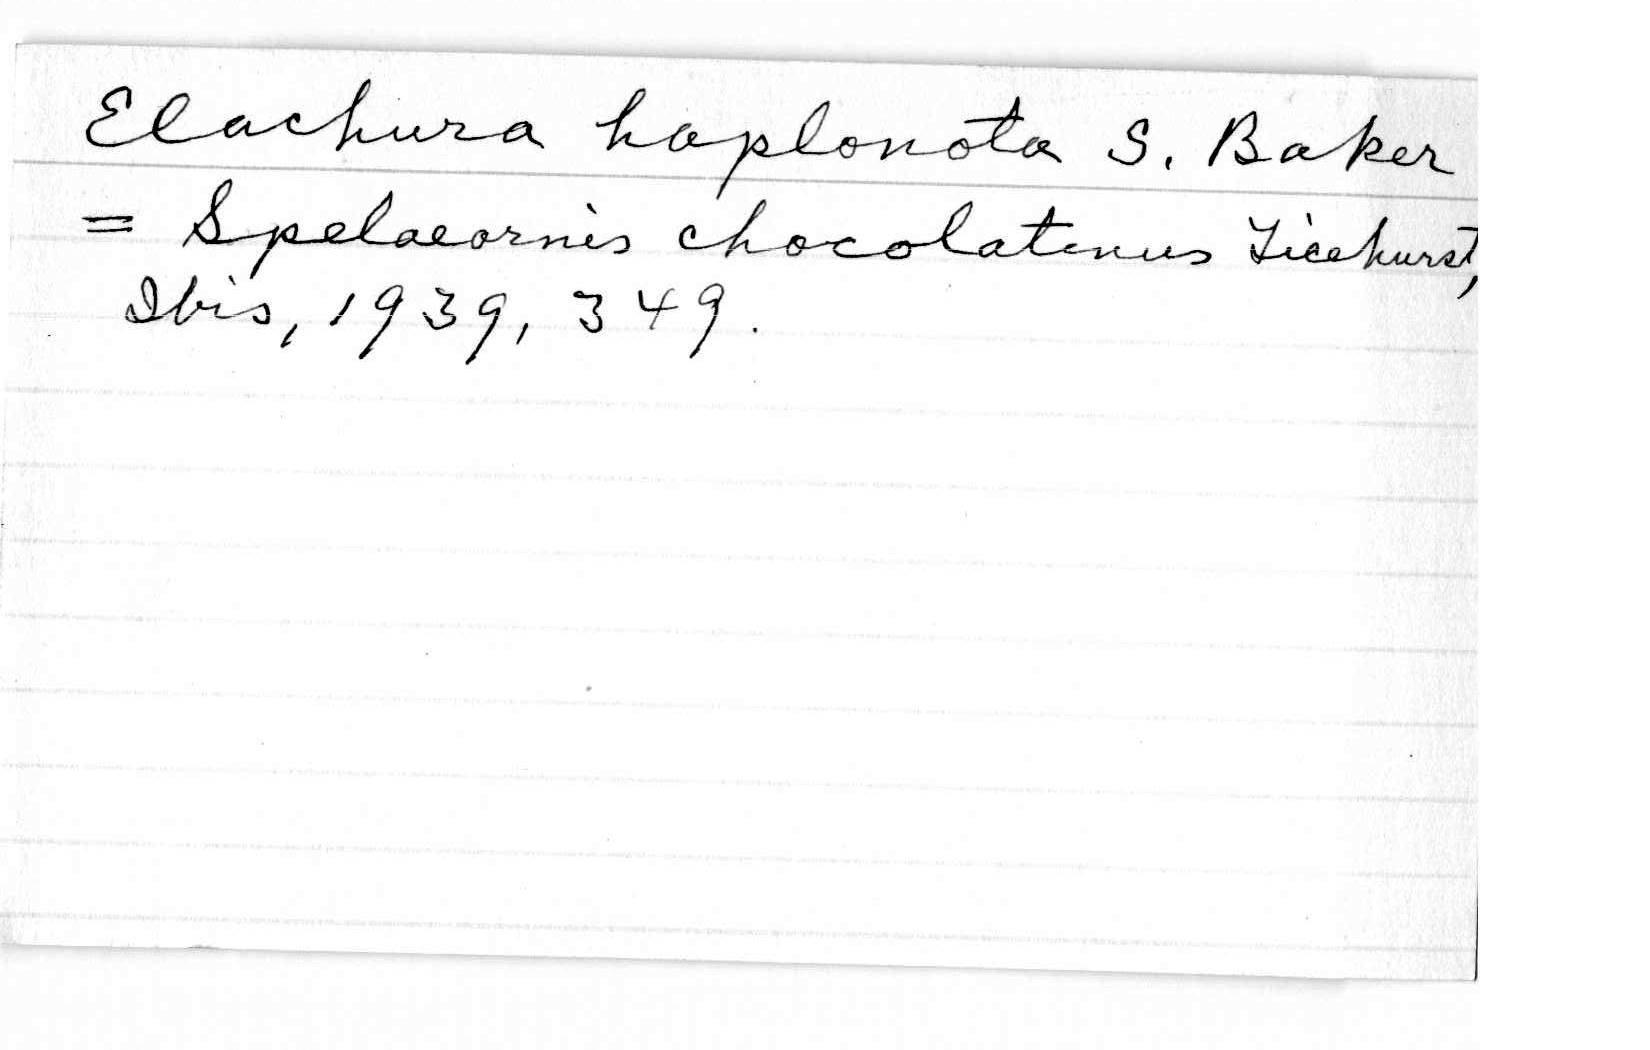 Elachura haplonota S. Baker
= Spelaeornis chocolatinus Ticehurst,
Ibis, 1939, 349.